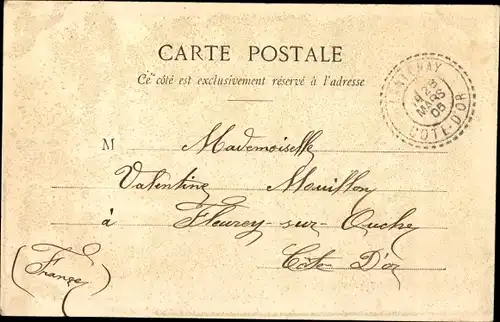 CARTE POSTALE
Ce côté est exclusivement réservé à l'adresse
MARS
05
COTE-D'OR
M Mademoiselle
Valentine Mouillon
à Fleurey-sur-Ouche
Côte D'or
(France)